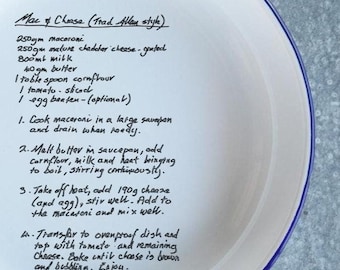 Mac & Cheese (Trad Allen style)
250gm macaroni
250gm mature cheddar cheese - grated
800ml milk
40gm butter
1 table spoon cornflour
1 tomato - sliced
1 egg beaten - (optional)
1. Cook macaroni in a large saucepan
and drain when ready.
2. Melt butter in saucepan, add
cornflour, milk and heat bringing
to boil, stirring continuously.
3. Take off heat, add 190g cheese
(and egg), stir well. Add to
the macaroni and mix well.
4. Transfer to ovenproof dish and
top with tomato and remaining
cheese. Bake until cheese is brown
and bubbling. Enjoy.